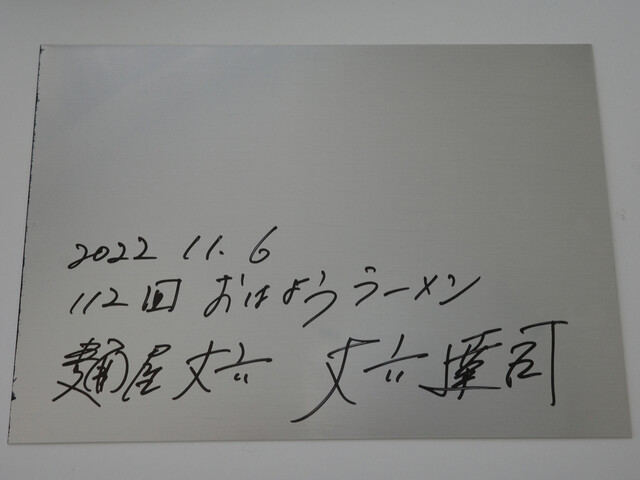 2022 11. 6
112回 おはようラーメン
麺屋 丈六 丈六